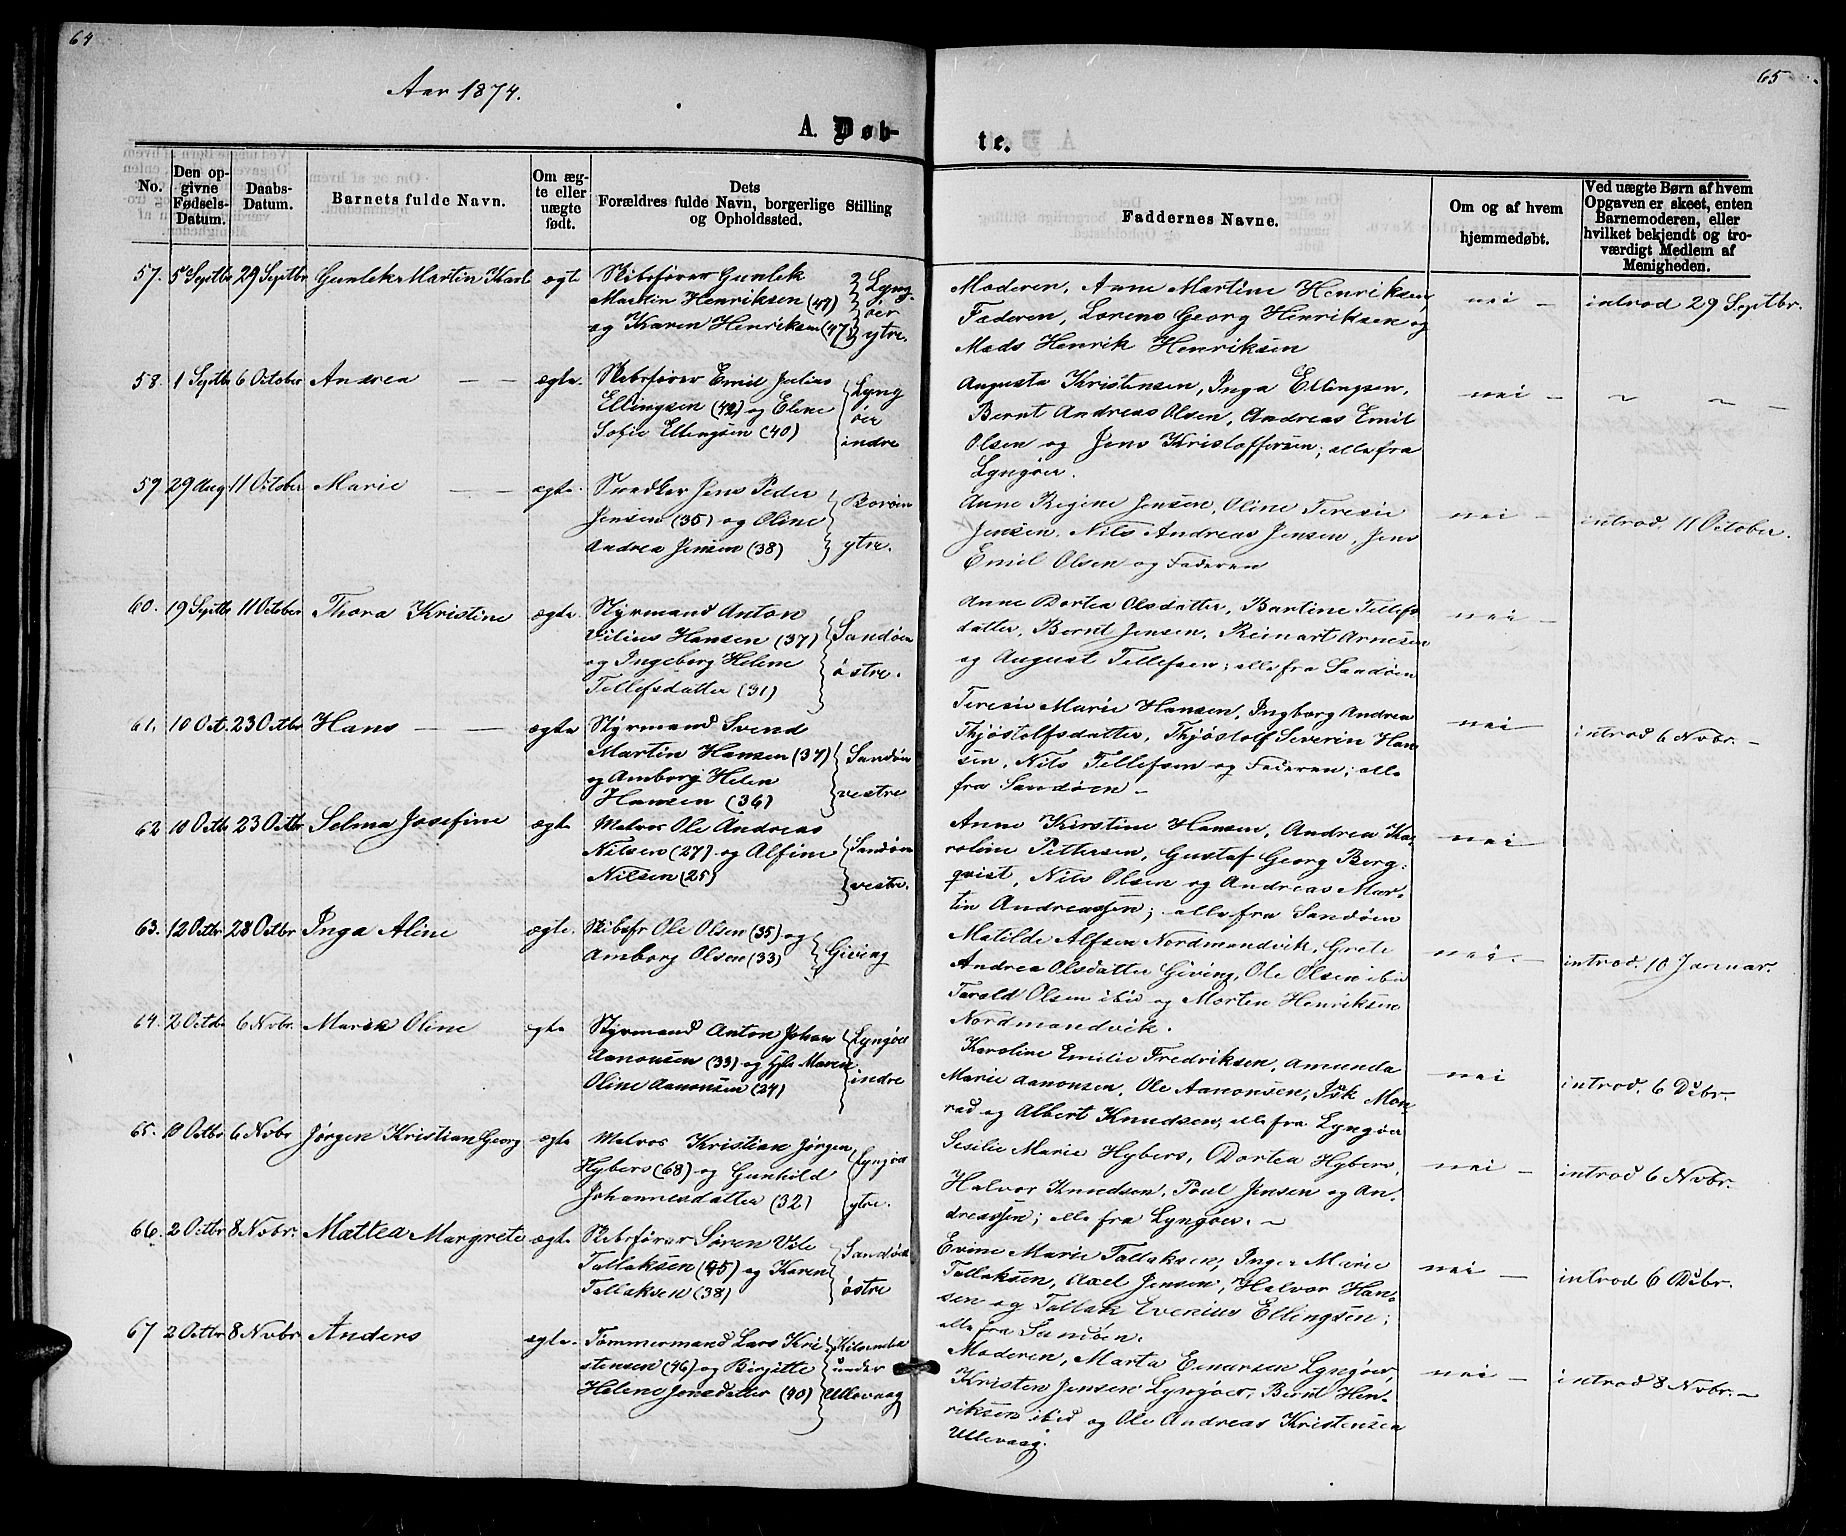 64
Aar 1874.
A. Døb-
No.
Den op-
givne
Fødsels-
Datum.
Daabs-
Datum.
Barnets fulde Navn.
Om æg-
te eller
uægte
født.
Dets
Forældres fulde Navn, borgerlige Stilling
og Opholdssted.
57. 5 Septbr 29 Septbr Gunlek Martin Karl ægte Skibsfører Gunlek
Martin Henriksen (47)
og Karen Henriksen (47)
Lyng-
øer
ytre.
58. 1 Septbr 6 October Andrea — — ægte. Skibsfører Emil Julius
Ellingsen (42) og Elene
Sofie Ellingsen (40)
Lyng
øer
indre
59 29 Aug 11 October Marie — — ægte. Snedker Jens Peder
Jensen (35) og Oline
Andrea Jensen (38)
Borøen
ytre.
60. 19 Septbr 11 October Thora Kristine ægte. Styrmand Anton
Vilius Hansen (37)
og Ingeborg Helene
Tellefsdatter (31)
Sandøen
østre.
61. 10 Oct. 23 Octbr Hans — — ægte Styrmand Svend
Martin Hansen (37)
og Amborg Helen
Hansen (36)
Sandøen
vestre
62 10 Octbr 23 Octbr Selma Josefine ægte Matros Ole Andreas
Nilsen (27) og Alfine
Nilsen (25)
Sandøen
vestre.
63. 12 Octbr 28 Octbr Inga Aline ægte. Skibsfr Ole Olsen (35) og
Amborg Olsen (33)
Giving
64. 2 Octbr 6 Novbr. Maren Oline ægte Styrmand Anton Johan
Aanonsen (33) og Maren
Oline Aanonsen (24)
Lyngøer
indre
65. 10 Octbr 6 Novbr Jørgen Kristian Georg ægte Matros Kristian Jørgen
Hybers (68) og Gunhild
Johannesdatter (32)
Lyngøer
ytre.
66. 2 Octbr 8 Novbr. Mattea Margrete ægte Skibsfører Søren Vile
Tallaksen (45) og Karen
Tallaksen (38)
Sandøen
østre
67 2 Octbr 8 Novbr. Anders ægte. Tømmermand Lars Kri
stensen (46) og Birgitte
Helene Jensdatter (40)
under
Ullevaag
65
te.
Faddernes Navne.
Om og af hvem
hjemmedøbt.
Ved uægte Børn af hvem
Opgaven er skeet, enten
Barnemoderen, eller
hvilket bekjendt og tro-
værdigt Medlem af
Menigheden.
Moderen, Anne Martine Henriksen,
Faderen, Lorens Georg Henriksen og
Mads Henrik Henriksen
nei — introd 29 Septbr.
Augusta Kristensen, Inga Ellingsen,
Bernt Andreas Olsen, Andreas Emil
Olsen og Jens Kristoffersen; alle fra
Lyngøer.
nei — ~ ~ —
Anne Regine Jensen, Oline Teresie
Jensen, Nils Andreas Jensen, Jens
Emil Olsen og Faderen
nei — introd. 11 October.
Anne Dortea Olsdatter, Bartine Tellefs
datter, Bernt Jensen, Reinart Arnesen
og August Tellefsen; alle fra Sandøen
nei —
Teresie Marie Hansen, Ingborg Andrea
Thjøstolfsdatter, Thjøstolf Severin Han
sen, Nils Tellefsen og Faderen; alle
fra Sandøen —
nei — introd 6 Novbr. —
Anne Kirstine Hansen, Andrea Ka-
roline Pettersen, Gustaf Georg Berg-
qvist, Nils Olsen og Andreas Mar-
tin Andreassen; alle fra Sandøen
nei —
Matilde Alfsen Nordmandvik, Grete
Andrea Olsdatter Giving, Ole Olsen ibid
Tarald Olsen ibid og Morten Henriksen
Nordmandvik.
nei. — introd. 10 Januar.
Karoline Emilie Fredriksen, Amunda
Marie Aanonsen, Ole Aanonsen, Isk Mon
rad og Albert Knudsen; alle fra Lyngøer
nei introd. 6 Debr.
Sesilie Marie Hybers, Dortea Hybers,
Halvor Knudsen, Poul Jensen og An-
dreassen; alle fra Lyngøer. ~
nei — introd 6 Novbr.
Evine Marie Tallaksen, Inger Marie
Tallaksen, Axel Jensen, Halvor Han-
sen og Tallak Evenius Ellingsen;
alle fra Sandøen.
nei — introd 6 Debr.
Moderen, Marta Einarsen Lyngøer,
Kristen Jensen Lyngøer, Bernt Hen-
riksen ibid og Ole Andreas Kristensen
Ullevaag.
nei — introd 8 Novbr. —